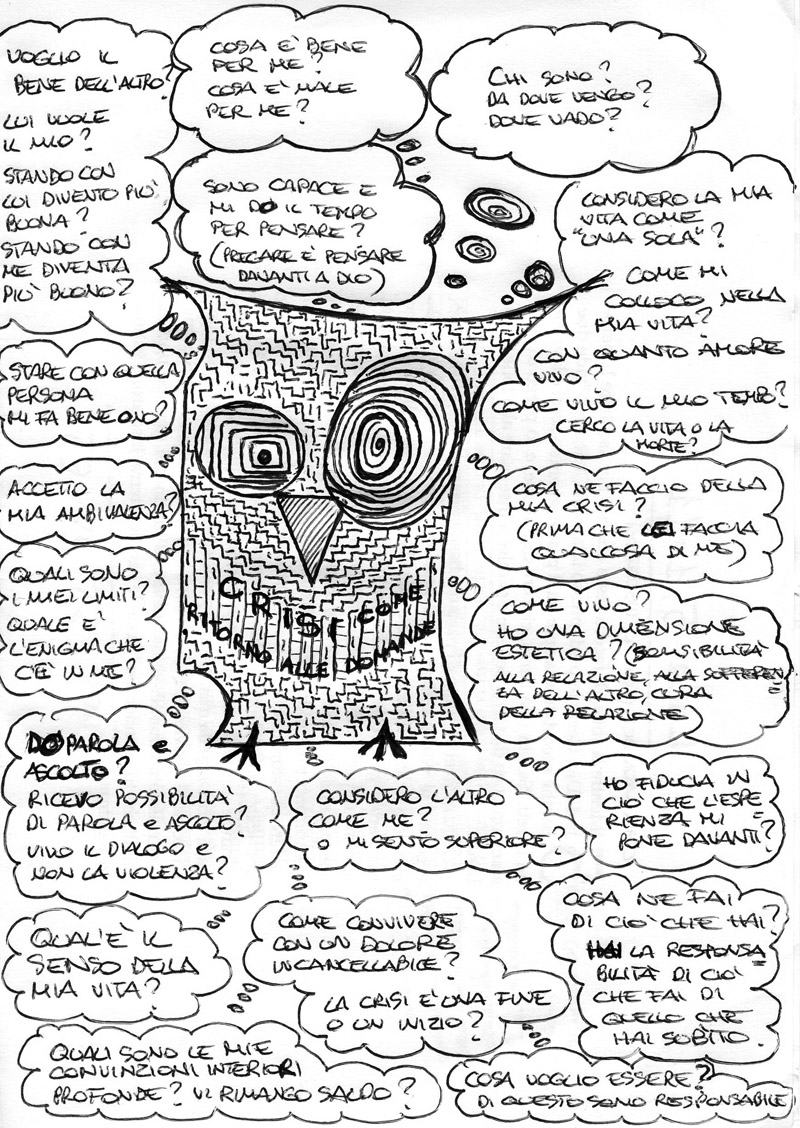 VOGLIO IL
BENE DELL'ALTRO?
LUI VUOLE
IL MIO?
STANDO CON
LUI DIVENTO PIU'
BUONA?
STANDO CON
ME DIVENTA
PIU' BUONO?
COSA E' BENE
PER ME?
COSA E' MALE
PER ME?
CHI SONO?
DA DOVE VENGO?
DOVE VADO?
SONO CAPACE E
MI DO IL TEMPO
PER PENSARE?
(PREGARE E' PENSARE
DAVANTI A DIO)
CONSIDERO LA MIA
VITA COME
"UNA SOLA"?
COME MI
COLLOCO NELLA
MIA VITA?
CON QUANTO AMORE
VIVO?
COME VIVO IL MIO TEMPO?
CERCO LA VITA O LA
MORTE?
STARE CON QUELLA
PERSONA
MI FA BENE O NO?
ACCETTO LA
MIA AMBIVALENZA?
COSA NE FACCIO DELLA
MIA CRISI?
(PRIMA CHE LEI FACCIA
QUALCOSA DI ME)
QUALI SONO
I MIEI LIMITI?
QUALE E'
L'ENIGMA CHE
C'E' IN ME?
CRISI COME
RITORNO ALLE DOMANDE
COME VIVO?
HO UNA DIMENSIONE
ESTETICA? (SENSIBILITÀ
ALLA RELAZIONE, ALLA SOFFEREN
ZA DELL'ALTRO, CURA
DELLA RELAZIONE)
DO PAROLA e
ASCOLTO?
RICEVO POSSIBILITA'
DI PAROLA e ASCOLTO?
VIVO IL DIALOGO e
NON LA VIOLENZA?
CONSIDERO L'ALTRO
COME ME?
O MI SENTO SUPERIORE?
HO FIDUCIA IN
CIO' CHE L'ESPE
RIENZA MI
PONE DAVANTI?
QUAL'E' IL
SENSO DELLA
MIA VITA?
COME CONVIVERE
CON UN DOLORE
INCANCELLABILE?
LA CRISI E' UNA FINE
O UN INIZIO?
COSA NE FAI
DI CIO' CHE HAI?
HAI LA RESPONSA
BILITÀ DI CIO'
CHE FAI DI
QUELLO CHE
HAI SUBITO.
QUALI SONO LE MIE
CONVINZIONI INTERIORI
PROFONDE? VI RIMANGO SALDO?
COSA VOGLIO ESSERE?
DI QUESTO SONO RESPONSABILE